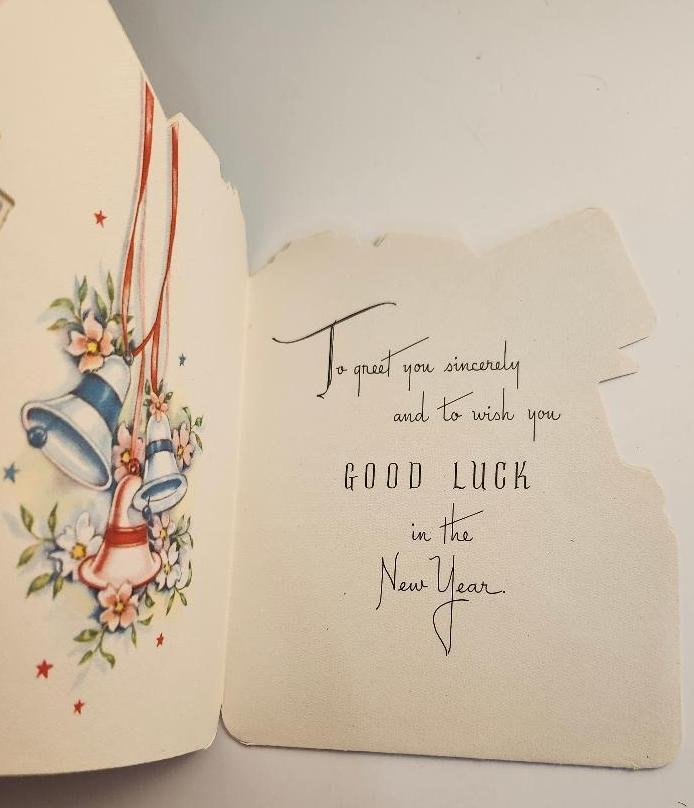 To greet you sincerely
and to wish you
GOOD LUCK
in the
New Year.